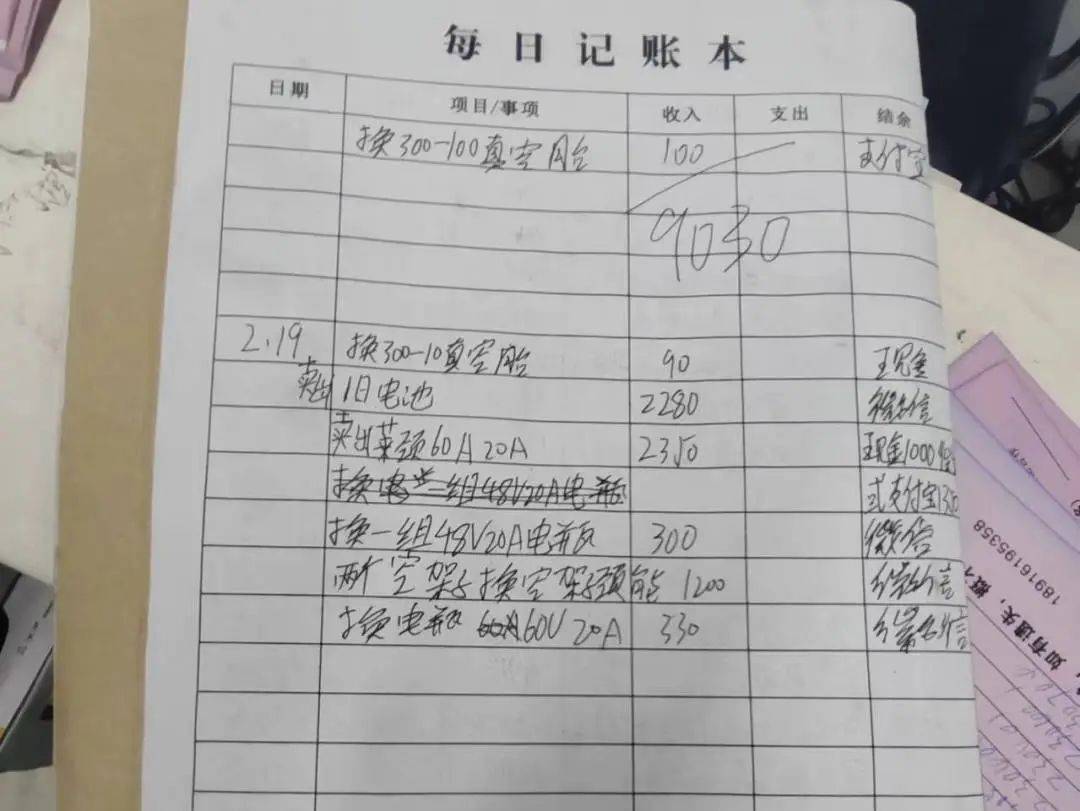 每日记账本
日期 项目/事项 收入 支出 结余
换300-100真空胎 100 支付宝
9030
2.19 换300-10真空胎 90 现金
卖出 旧电池 2280 微信
卖出 60A 20A 2350 现金1000
48V20A电瓶 支付宝1350
换一组48V20A电瓶 300 微信
两个空架子换空架子 1200 微信
换电瓶 60V 20A 330 微信
如有遗失,
18916195358